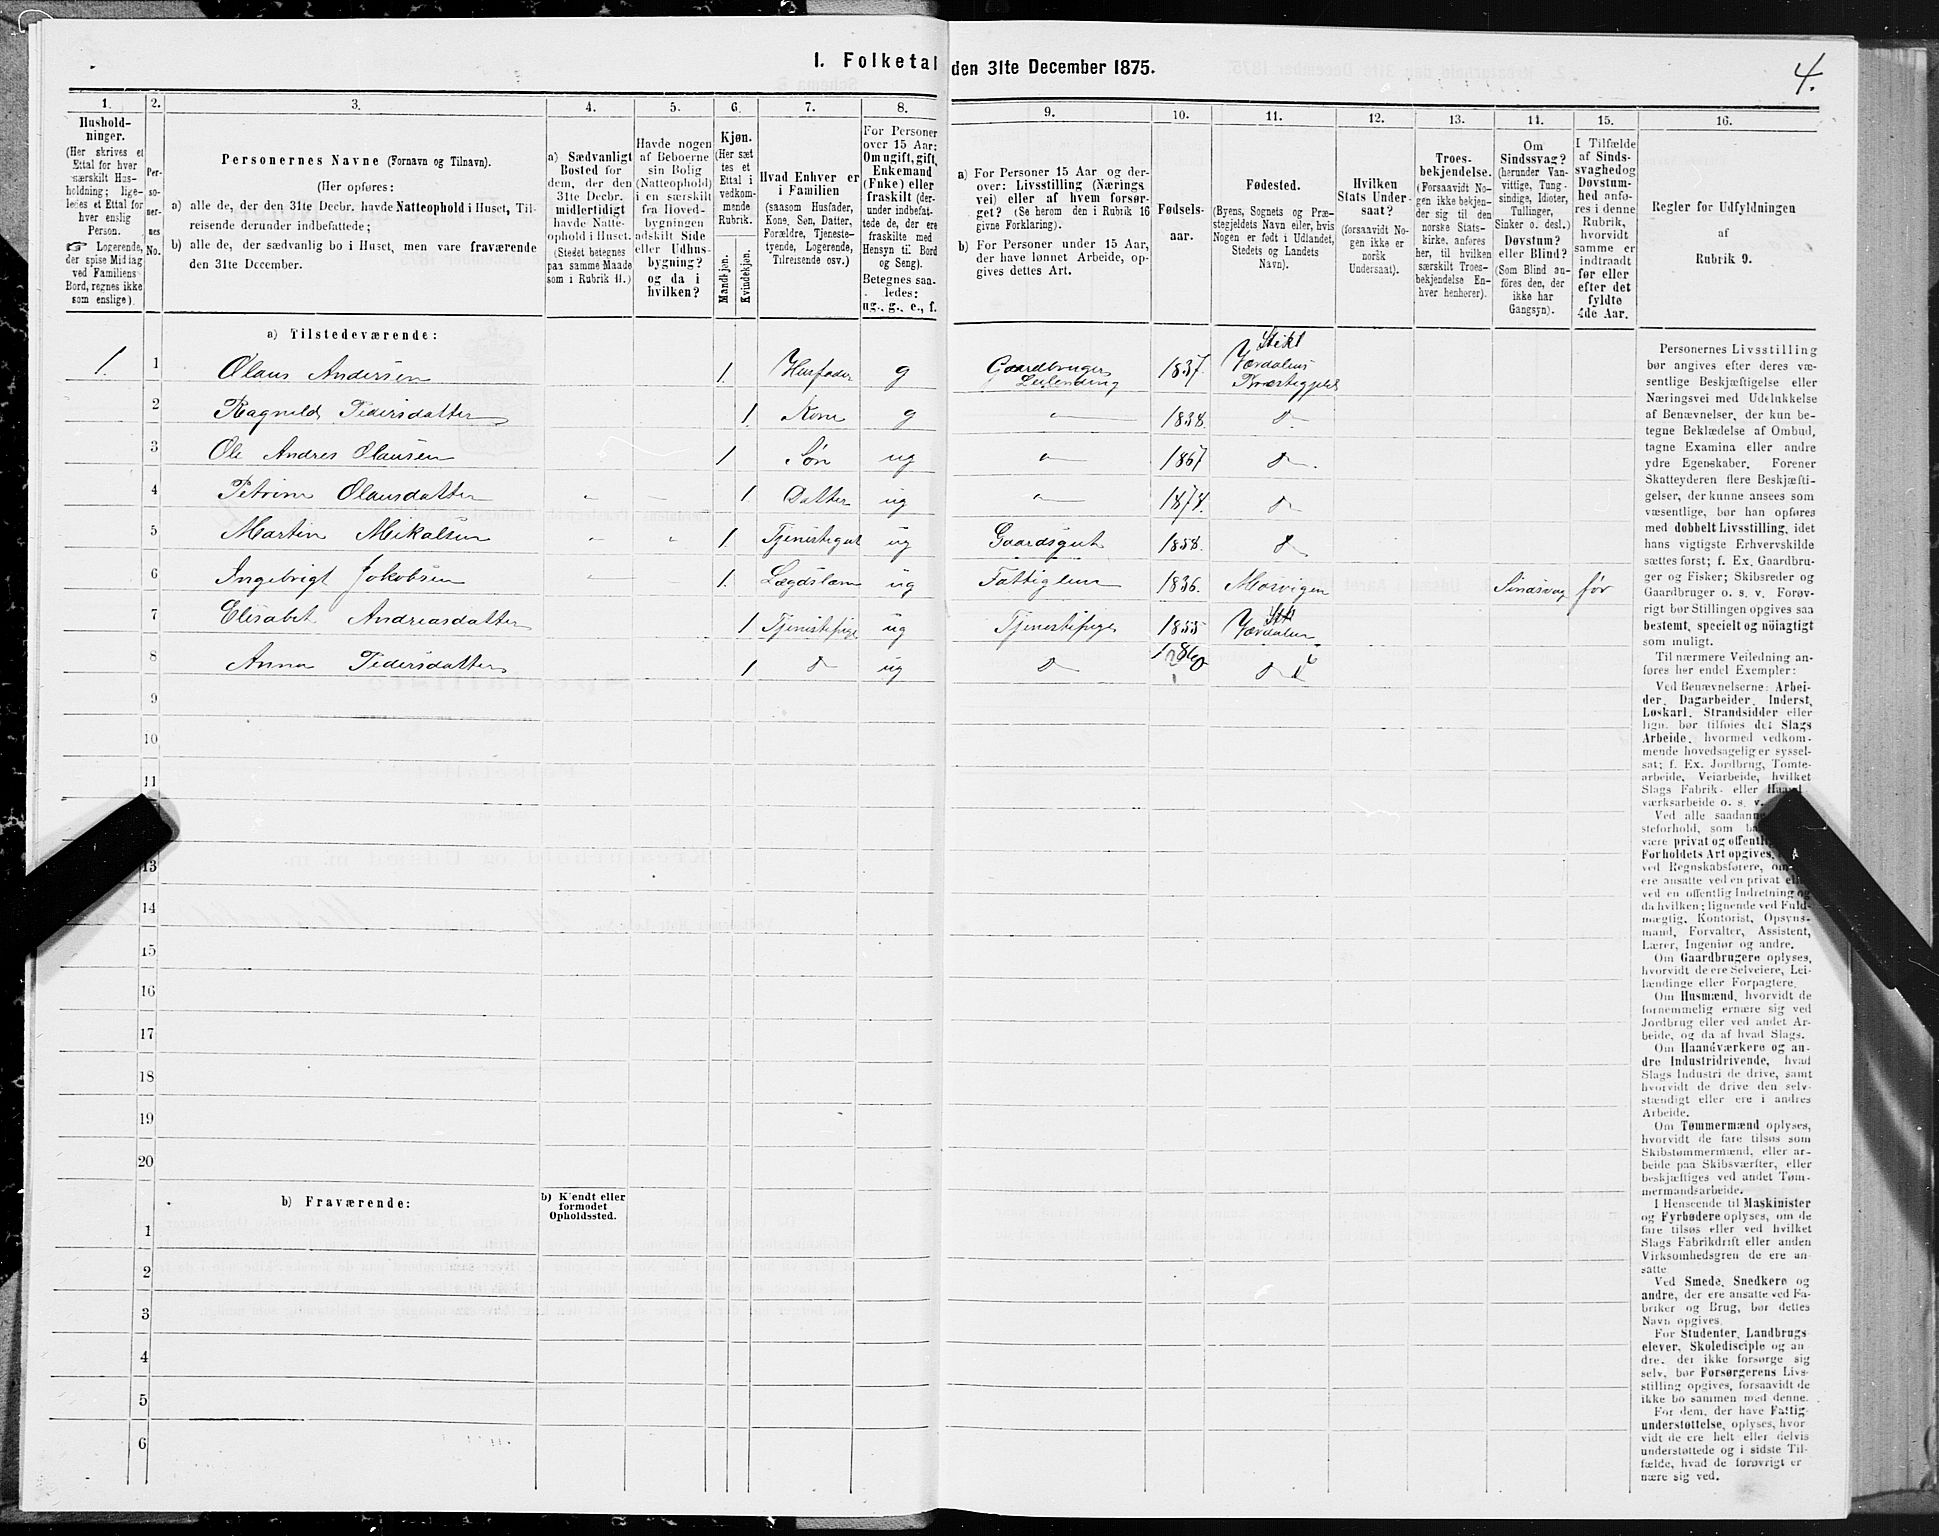 I. Folketal den 31te December 1875.
4.
1.
2.
3.
4.
5.
6.
7.
8.
9.
10.
11.
12.
13.
14.
15.
16.
Hushold-
ninger.
(Her skrives et
Ettal for hver
særskilt Hus-
holdning; lige-
ledes et Ettal for
hver enslig
Person.
☞ Logerende,
der spise Middag
ved Familiens
Bord, regnes ikke
som enslige).
Per-
so-
ner-
nes
No.
Personernes Navne (Fornavn og Tilnavn).
(Her opføres:
a) alle de, der den 31te Decbr. havde Natteophold i Huset, Til-
reisende derunder indbefattede;
b) alle de, der sædvanlig bo i Huset, men vare fraværende
den 31te December.
a) Sædvanligt
Bosted for
dem, der den
31te Decbr.
midlertidigt
havde Natte-
ophold i Huset.
(Stedet betegnes
paa samme Maade
som i Rubrik 11.)
Havde nogen
af Beboerne
sin Bolig
(Natteophold)
i en særskilt
fra Hoved-
bygningen
adskilt Side
eller Udhus-
bygning?
og da i
hvilken?
Kjøn.
(Her sæt
tes et
Ettal i
vedkom-
mende
Rubrik.
Mandkjøn.
Kvindekjøn.
Hvad Enhver er
i Familien
(saasom Husfader,
Kone, Søn, Datter,
Forældre, Tjeneste-
tyende, Logerende,
Tilreisende osv.)
For Personer
over 15 Aar:
Om ugift, gift,
Enkemand
(Enke) eller
fraskilt (der-
under indbefat-
tede de, der ere
fraskilte med
Hensyn til Bord
og Seng).
Betegnes saa-
ledes:
ug., g., e., f.
a) For Personer 15 Aar og der-
over: Livsstilling (Nærings
vei) eller af hvem forsør-
get? (Se herom den i Rubrik 16
givne Forklaring).
b) For Personer under 15 Aar,
der have lønnet Arbeide, op-
gives dettes Art.
Fødsels-
aar.
Fødested.
(Byens, Sognets og Præ-
stegjeldets Navn eller, hvis
Nogen er født i Udlandet,
Stedets og Landets
Navn).
Hvilken
Stats Under-
saat?
(forsaavidt No-
gen ikke er
norsk
Undersaat).
Troes-
bekjendelse.
(Forsaavidt No-
gen ikke bekjen-
der sig til den
norske Stats-
kirke, anføres
her, til hvilken
særskilt Troes-
bekjendelse En-
hver henhører).
Om
Sindssvag?
(herunder Van-
vittige, Tung-
sindige, Idioter,
Tullinger,
Sinker o. desl.)
Døvstum?
eller Blind?
(Som Blind an-
føres den, der
ikke har
Gangsyn).
I Tilfælde
af Sinds-
svaghed og
Døvstum-
hed anfø-
res i denne
Rubrik,
hvorvidt
samme er
indtraadt
før eller
efter det
fyldte
4de Aar.
Regler for Udfyldningen
af
Rubrik 9.
a) Tilstedeværende:
1. 1 Olaus Andersen 1. Husfader g Gaardbruger Leilending 1837. Stikl Værdalens Præstegjeld
2 Ragnild Pedersdatter 1. Kone g " 1838. D.
3 Ole Andres Olausen 1 Søn ug " 1867 D.
4 Petrine Olausdatter " " 1 Datter ug " 1874. D
5 Martin Mikalsen " " 1. Tjenestegut ug Gaardsgut 1858. D
6 Ingebrigt Jokobsen " 1. Lægdslem ug Fattiglem 1836. Mosvigen Sindsvag før
7 Elisabet Andreasdatter 1 Tjenestepige ug Tjenestepige 1855 Stkl Værdalen
8 Anna Pedersdatter 1 D ug D 1860 D
9
10
11
13
14
15
16
17
18
19
20
b) Fraværende:
b) Kjendt eller
formodet
Opholdssted.
1
2
3
4
5
6
Personernes Livsstilling
bør angives efter deres væ-
sentlige Beskjæftigelse eller
Næringsvei med Udelukkelse
af Benævnelser, der kun be-
tegne Beklædelse af Ombud,
tagne Examina eller andre
ydre Egenskaber. Forener
Skatteyderen flere Beskjæfti-
gelser, der kunne ansees som
væsentlige, bør han opføres
med dobbelt Livsstilling, idet
hans vigtigste Erhvervskilde
sættes først; f. Ex. Gaardbru-
ger og Fisker; Skibsreder og
Gaardbruger o. s. v. Forøv-
rigt bør Stillingen opgives saa
bestemt, specielt og nöiagtigt
som muligt.
Til nærmere Veiledning an-
føres her endel Exempler:
Ved Benævnelserne: Arbei-
der, Dagarbeider, Inderst,
Løskarl, Strandsidder eller
lign. bør tilføies det Slags
Arbeide, hvormed vedkom-
mende hovedsagelig er syssel-
sat; f. Ex. Jordbrug, Tomte-
arbeide, Veiarbeide, hvilket
Slags Fabrik- eller Haand-
værksarbeide o. s. v.
Ved alle saadanne
steforhold, som
være privat og offentlig
Forholdets Art opgives,
ved Regnskabsførere, om
ere ansatte ved en privat eller
ved en offentlig Indretning og
da hvilken; lignende ved Fuld-
mægtig, Kontorist, Opsyns-
mand, Forvalter, Assistent,
Lærer, Ingeniør og andre.
Om Gaardbrugere oplyses,
hvorvidt de ere Selveiere, Lei-
lændinge eller Forpagtere.
Om Husmænd, hvorvidt de
fornemmelig ernære sig ved
Jordbrug eller ved andet Ar-
beide, og da af hvad Slags.
Om Haandværkere og an-
dre Industridrivende, hvad
Slags Industri de drive, samt
hvorvidt de drive den selv-
stændigt eller ere i andres
Arbeide.
Om Tømmermænd oplyses,
hvorvidt de fare tilsøs som
Skibstømmermænd, eller ar-
beide paa Skibsværfter, eller
beskjæftiges ved andet Tøm-
mermandsarbeide.
I Henseende til Maskinister
og Fyrbødere oplyses, om de
fare tilsøs eller ved hvilket
Slags Fabrikdrift eller anden
Virksomhedsgren de ere an-
satte
Ved Smede, Snedkere og
andre, der ere ansatte ved Fa-
briker og Brug, bør dettes
Navn opgives.
For Studenter, Landbrugs-
elever, Skoledisciple og an-
dre, der ikke forsørge sig
selv, bør Forsørgerens Livs-
stilling opgives, forsaavidt de
ikke bo sammen med denne.
For dem, der have Fattig-
understøttelse, oplyses, hvor-
vidt de ere helt eller delvis
understøttede og i sidste Til-
fælde, hvad de forøvrigt er
nære sig ved.